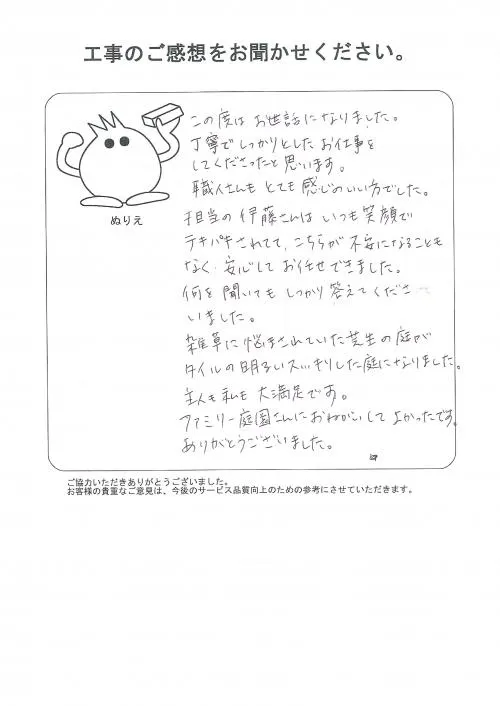 工事のご感想をお聞かせください。
ぬりえ
この度は お世話になりました。
丁寧で しっかりとした お仕事を
してくださったと 思います。
職人さんも とても 感じのいい方でした。
担当の 伊藤さんは いつも 笑顔で
テキパキされてて、こちらが 不安になることも
なく、安心して お任せできました。
何を 聞いても しっかり 答えてくださ
いました。
雑草に 悩まされていた 芝生の 庭が
タイルの 明るいスッキリした庭になりました。
主人も 私も 大満足です。
ファミリー庭園さんに おねがいして よかったです。
ありがとうございました。
ご協力いただきありがとうございました。
お客様の貴重なご意見は、今後のサービス品質向上のための参考にさせていただきます。